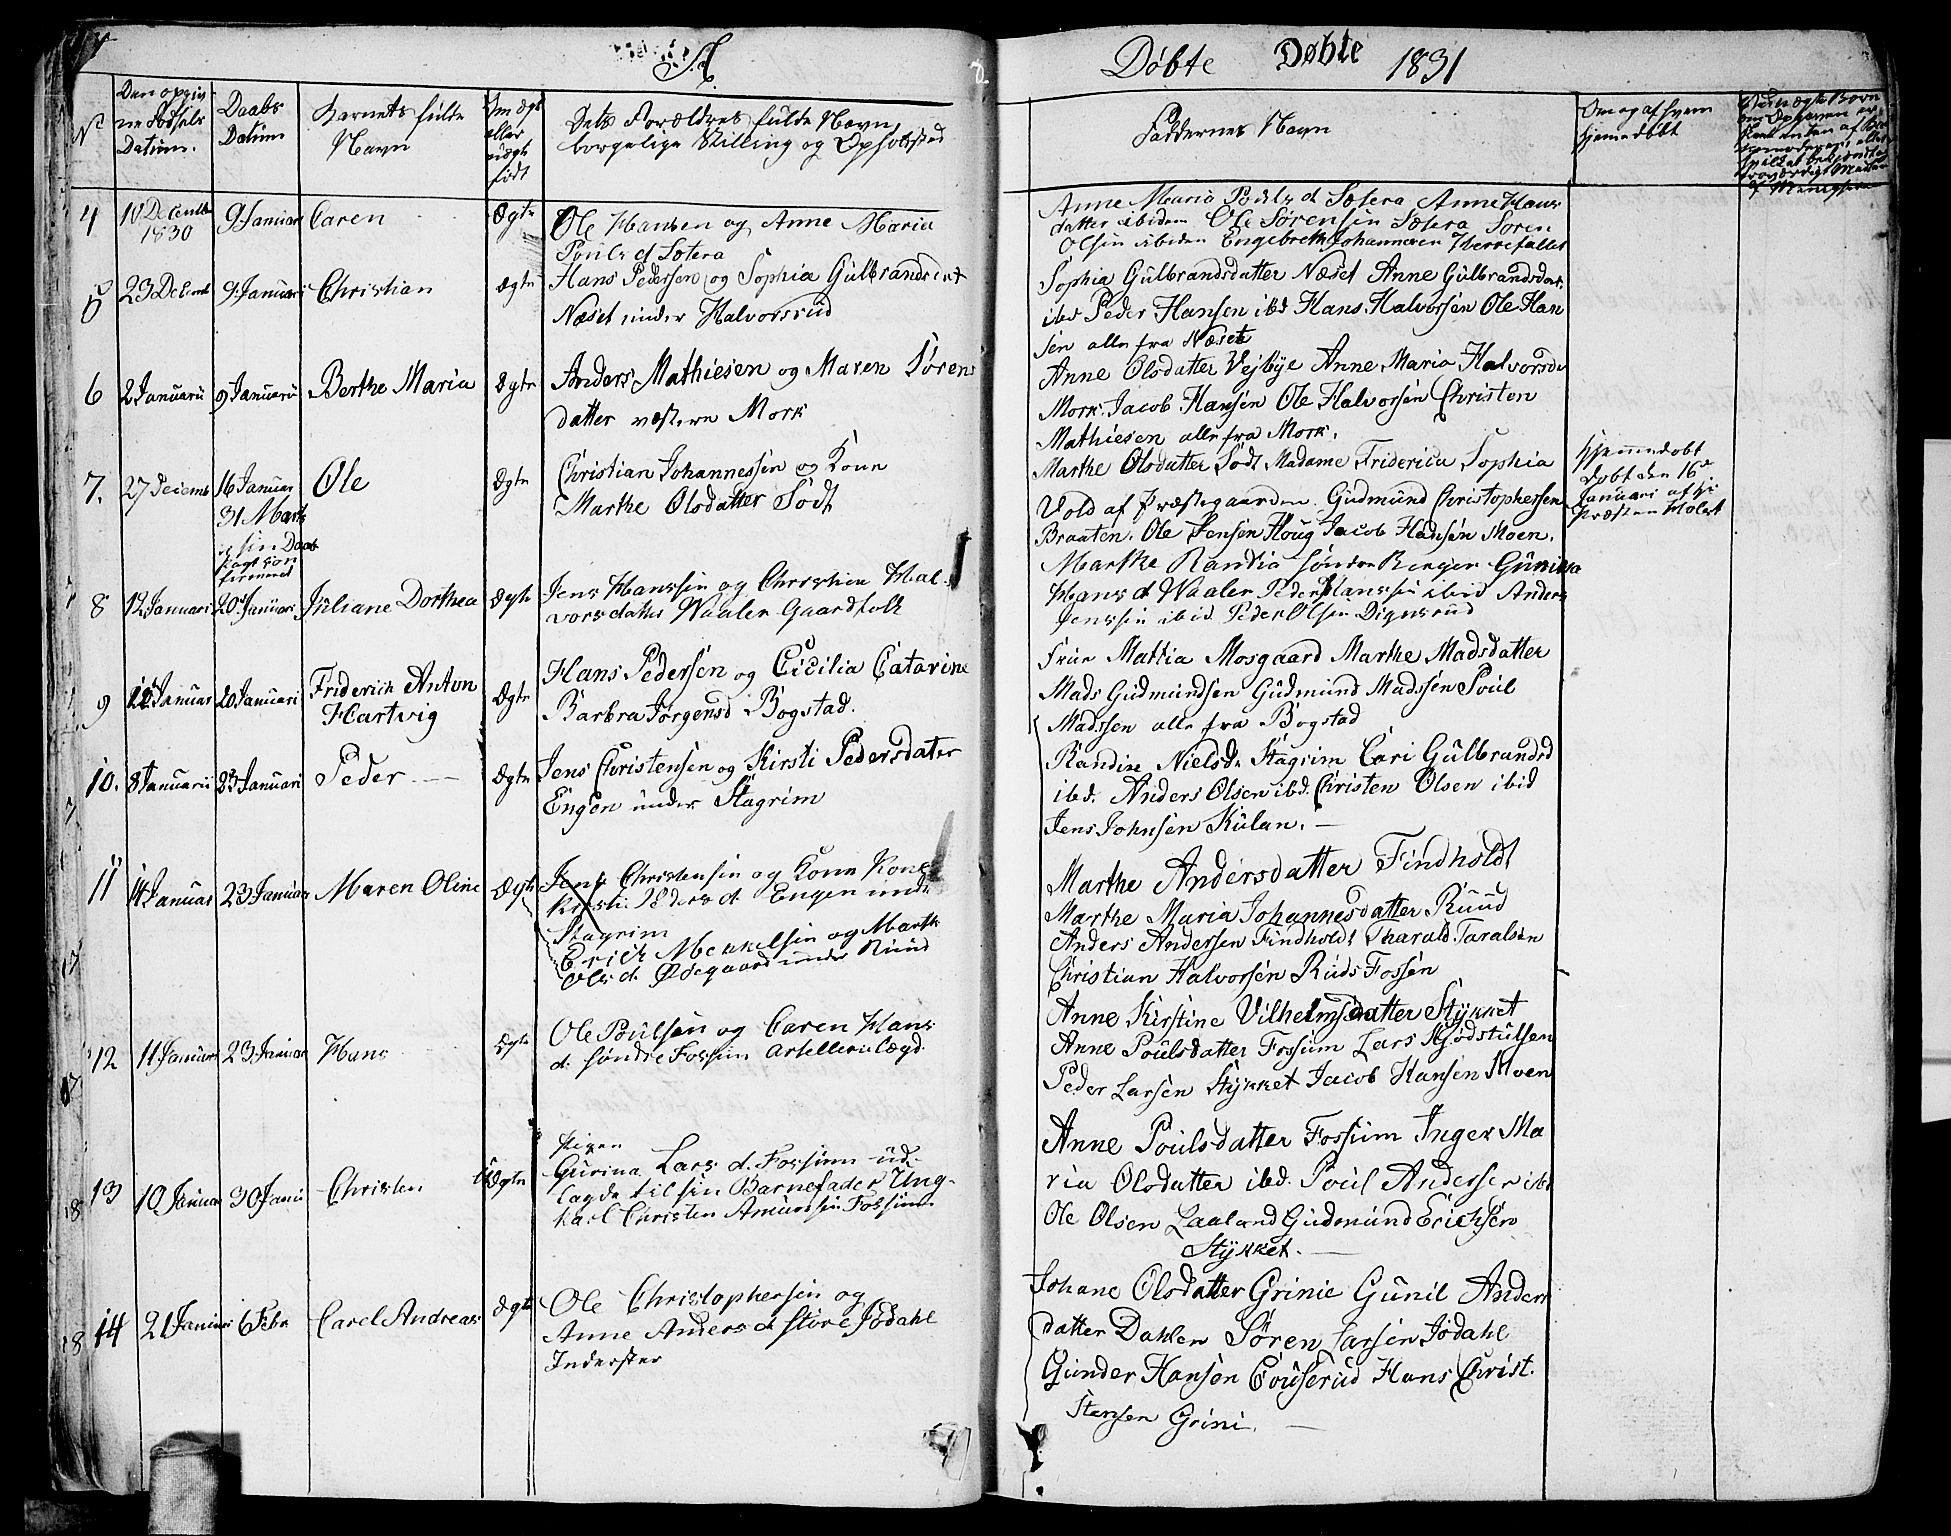 Døbte Døbte 1831
No
Den opgiv
ne Fødsels
Datum.
Daabs
Datum
Barnets fulde
Navn
Om ægte
eller
uægte
født
Dets Forældres fulde Navn,
borgelige Stilling og Opholdsted
Faddernes Navn
Om og af hvem
hjemmedøbt
4 10 December 1830 9 Januar Caren Ægte
Ole Hansen og Anne Maria
Pouls d Sætera
Anne Maria Pouls d Sætera Anne Hans
datter ibidem Ole Sørensen Sætera Soren
Olsen ibidem Engebreth Johannesen
5 23 Decemb 9 Januari Christian Ægte
Hans Pedersen og Sophia Gulbrandsdat
Næset under Halvorsrud
Sophia Gulbrandsdatter Næset Anne Gulbrandsdat.
ibd Peder Hansen ibd Hans Halvorsen Ole Han
sen alle fra Næset
6 2 Januarii 9 Januarii Berthe Maria Ægte
Anders Mathiesen og Maren Sørens
datter vestern Mork
Anne Olsdatter Vejbye Anne Maria Halvorsd
Mork. Jacob Hansen Ole Halvorsen Christen
Mathiesen alle fra Mork.
7. 27 Decemb 16 Januar Ole Ægte
31 Marts
Christian Johannessen og Kone
Marthe Olsdatter Sødt
Marthe Olsdatter Sødt Madame Friderica Sophia
Vold af Præstegaarden. Gudmund Christophersen
Braaten. Ole Jensen Houg Jacob Hansen Moen.
hjemmedøbt
Døbt den 16
Januari af
Præsten Holst
8 12 Januari 20 Januari Juliane Dorthea Ægte
Jens Hanssen og Christine Hal-
vorsdatter Waaler Gaardfolk
Marthe Randia søndre Berger Gunilla
Hans d Waaler Peder Hanssen ibid Anders
Jenssen ibid. Peder Olsen
9 12 Januar 20 Januari Friderich Anton
Hartvig Ægte
Hans Pedersen og Cicilia Catarine
Barbra Jørgensd Bogstad.
Frue Mattia Mosgaard Marthe Madsdatter
Mads Gudmundsen Gudmund Madssen Poul
Madssen alle fra Bogstad
10. 8 Januarii 23 Januari Peder Ægte
Jens Christensen og Kirsti Pedersdater
Engen under Stagrim
Randine Nielsd. Stagrim Cari Gulbrandsd
ibd. Anders Olsen ibd. Christen Olsen ibid
Jens Johnsen Kulan.
11 14 Januar 23 Januar Maren Oline Ægte
Jens Christensen og Kone Kone
Kirsti Peders d Engen under
Stagrim
Erich Mekkelsen og Marthe
Ols d. Ødegaard under Ruud
Marthe Andersdatter Findholdt
Marthe Maria Johannesdatter Ruud
Anders Andersen Findholdt Tharald Taralsen
Christian Halvorsen Ruds Fossen
12 11 Januari 23 Januar Hans Ægte
Ole Poulsen og Caren Hans
d. søndre Fossum Artillerielægd.
Anne Kirstine Vilhelmsdatter Stykket
Anne Poulsdatter Fossum Lars Skjødstulsen
Peder Larsen Stykket Jacob Hansen Moen
13 10 Januar 30 Janu Christen Uægte
Pigen
Gurina Lars d. Fossum ud-
lagde til sin Barnefader Ung-
karl Christen Amundsen Fossum.
Anne Poulsdatter Fossum Inger Ma
ria Olsdatter ibd. Poul Andersen ibd
Ole Olsen Laaland Gudmund Erichsen
Stykket.
14 21 Januari 6 Febr Carel Andreas Ægte
Ole Christophersen og
Anne Anders d Store Jødahl
Inderster
Johane Olsdatter Grinie Gunil Anders
datter Dahlen Søren Larsen Jødahl
Gunder Hansen Couserud Hans Christ.
stensen Grini.